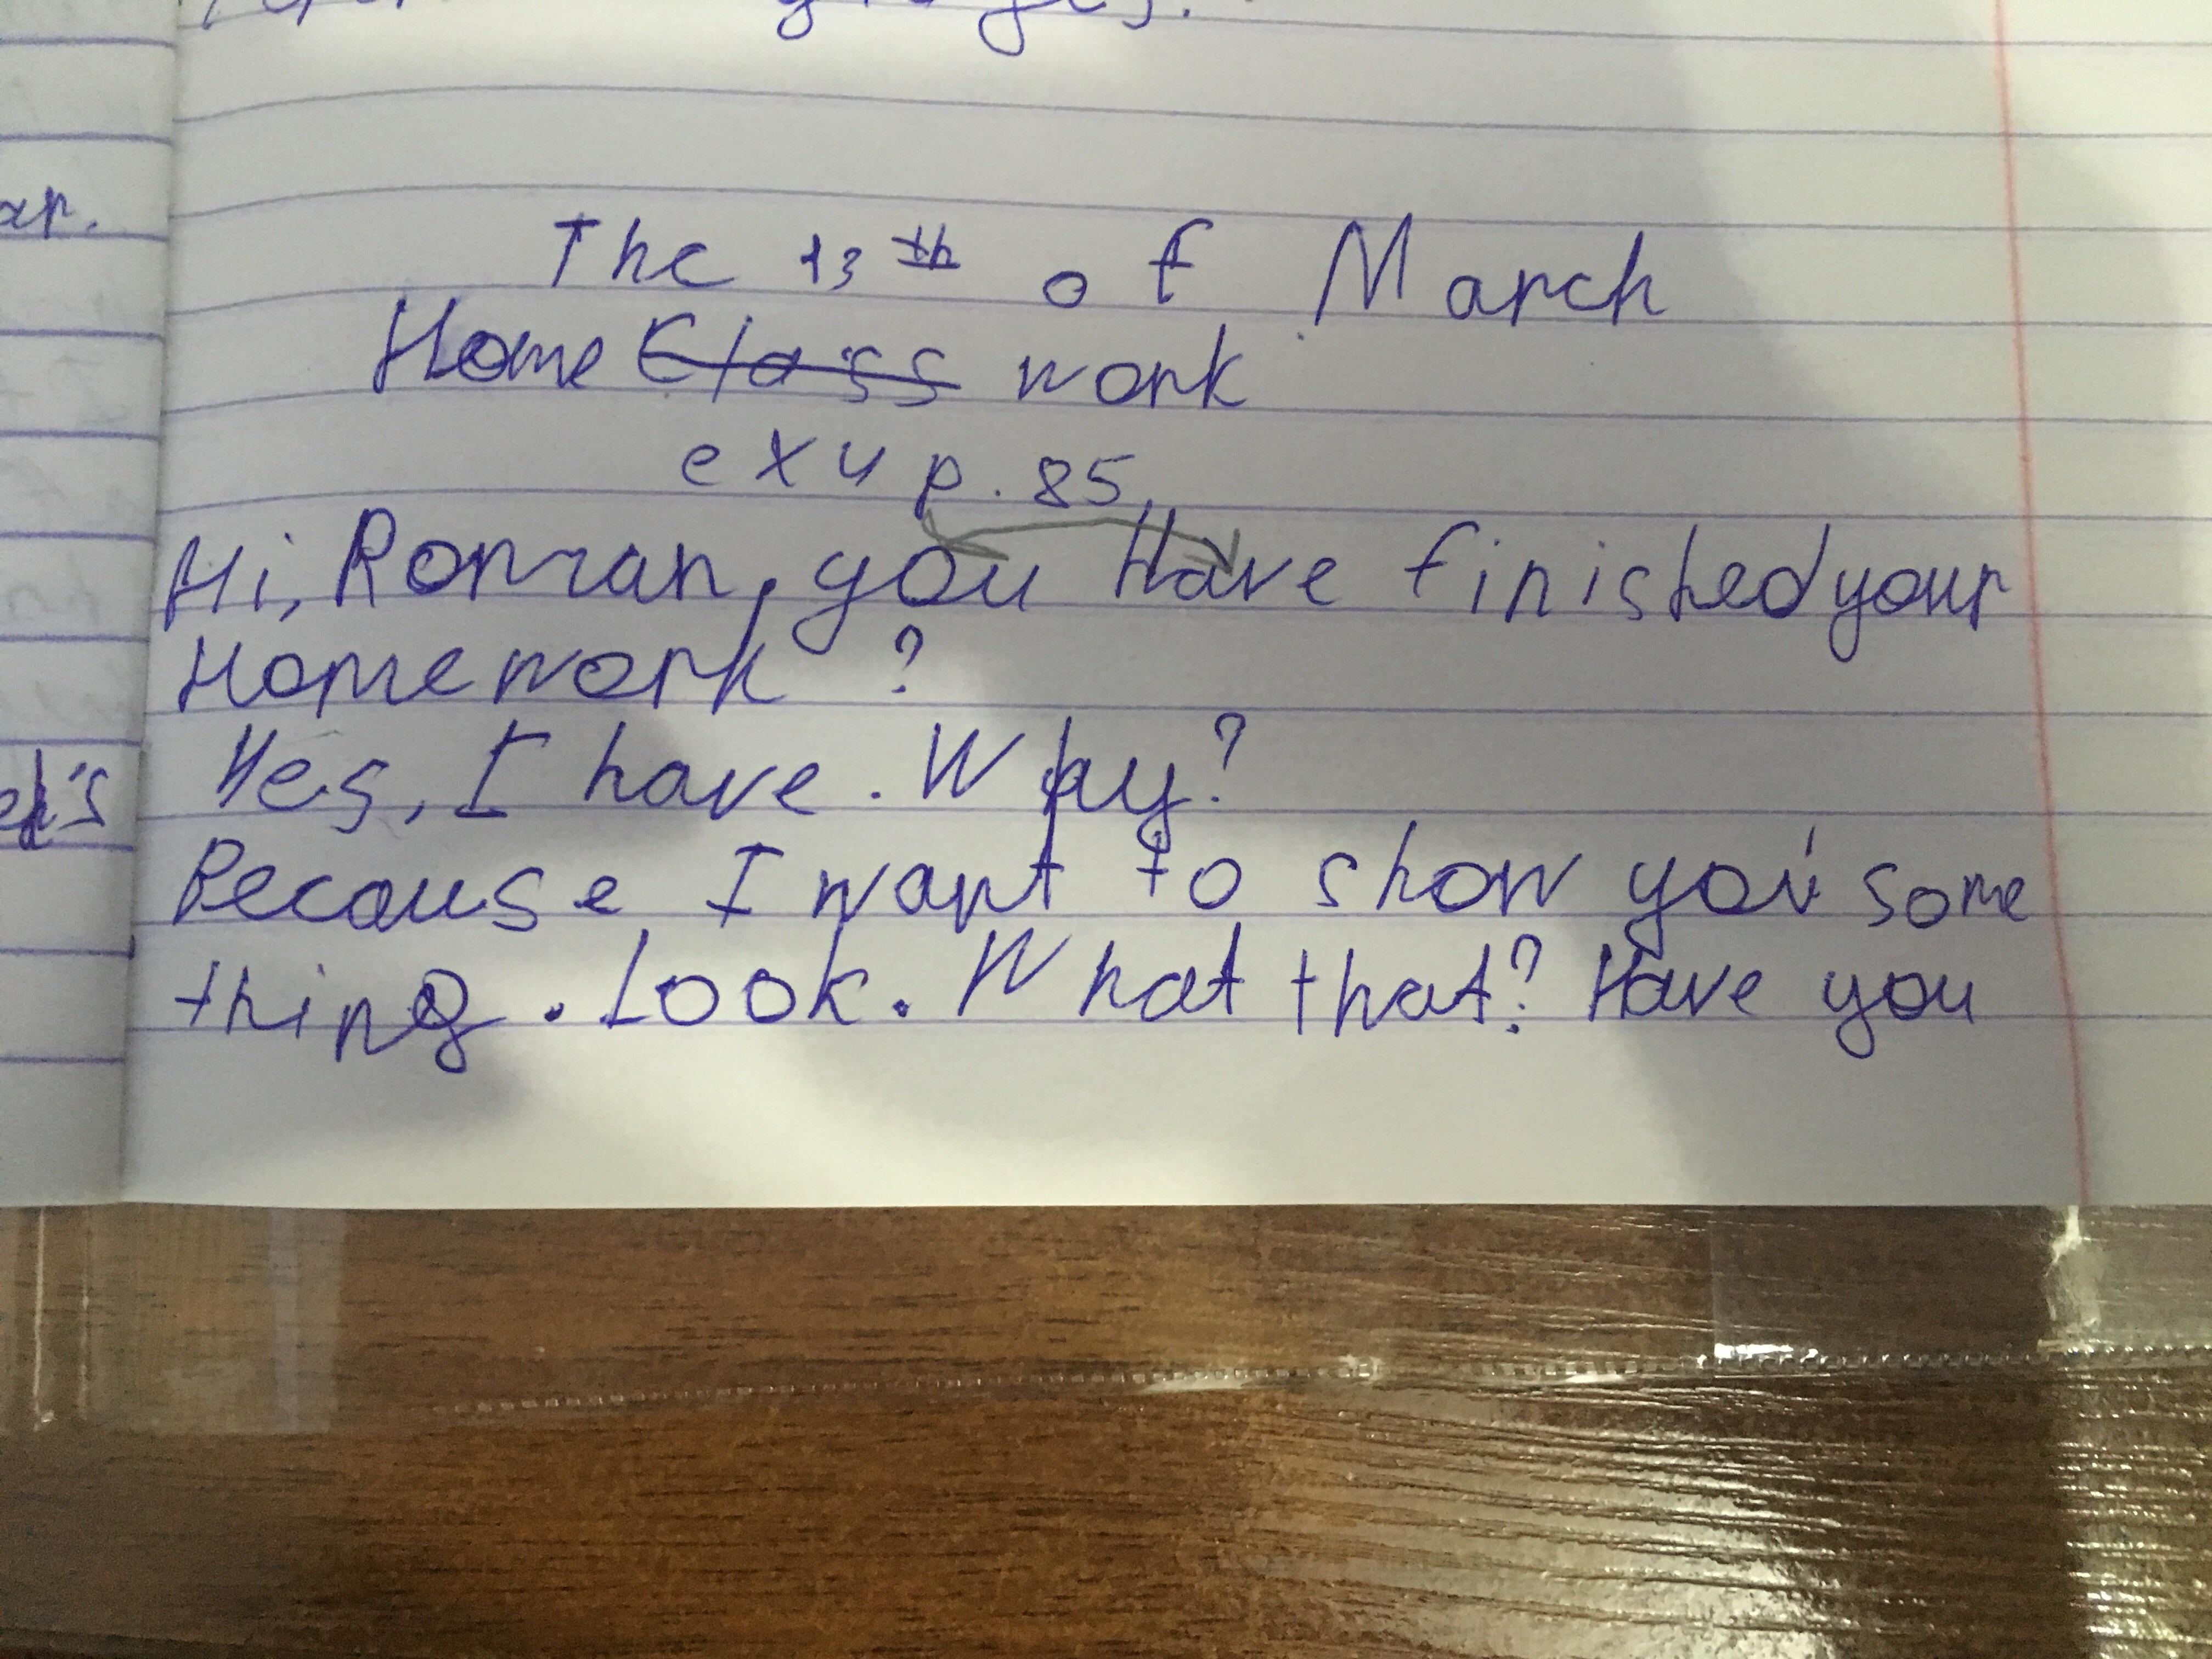 The 13th of March
Home Class work
ex 4 p. 85
Hi, Roman, you Have finished your
Homework ?
Yes, I have. Why?
Because I want to show you some
thing. Look. What that? Have you